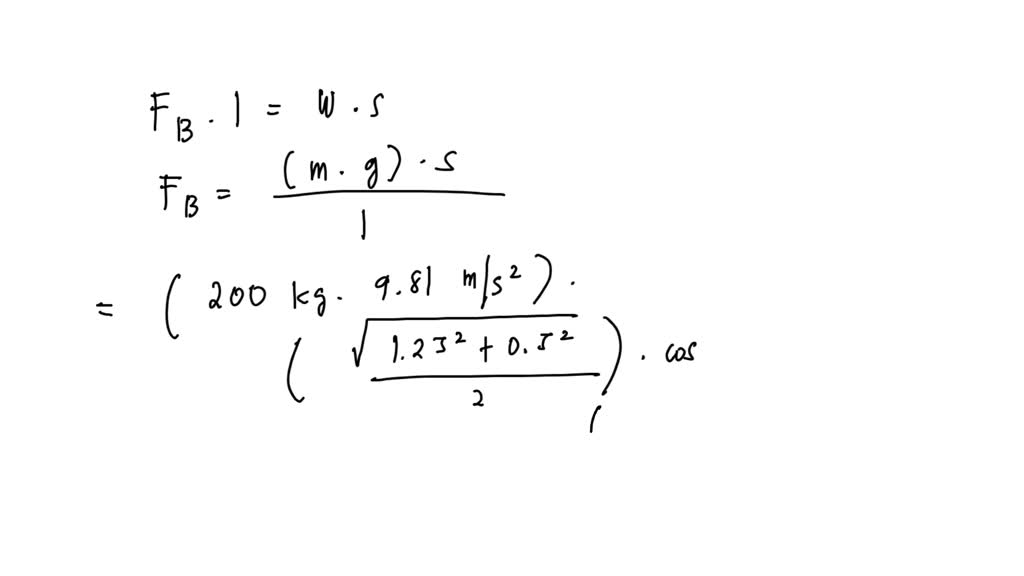 F_B · 1 = W · s
F_B = (m · g) · s / 1
= ( 200 kg · 9.81 m/s² ) ·
( √(1.25² + 0.5²) / 2 ) · cos
(